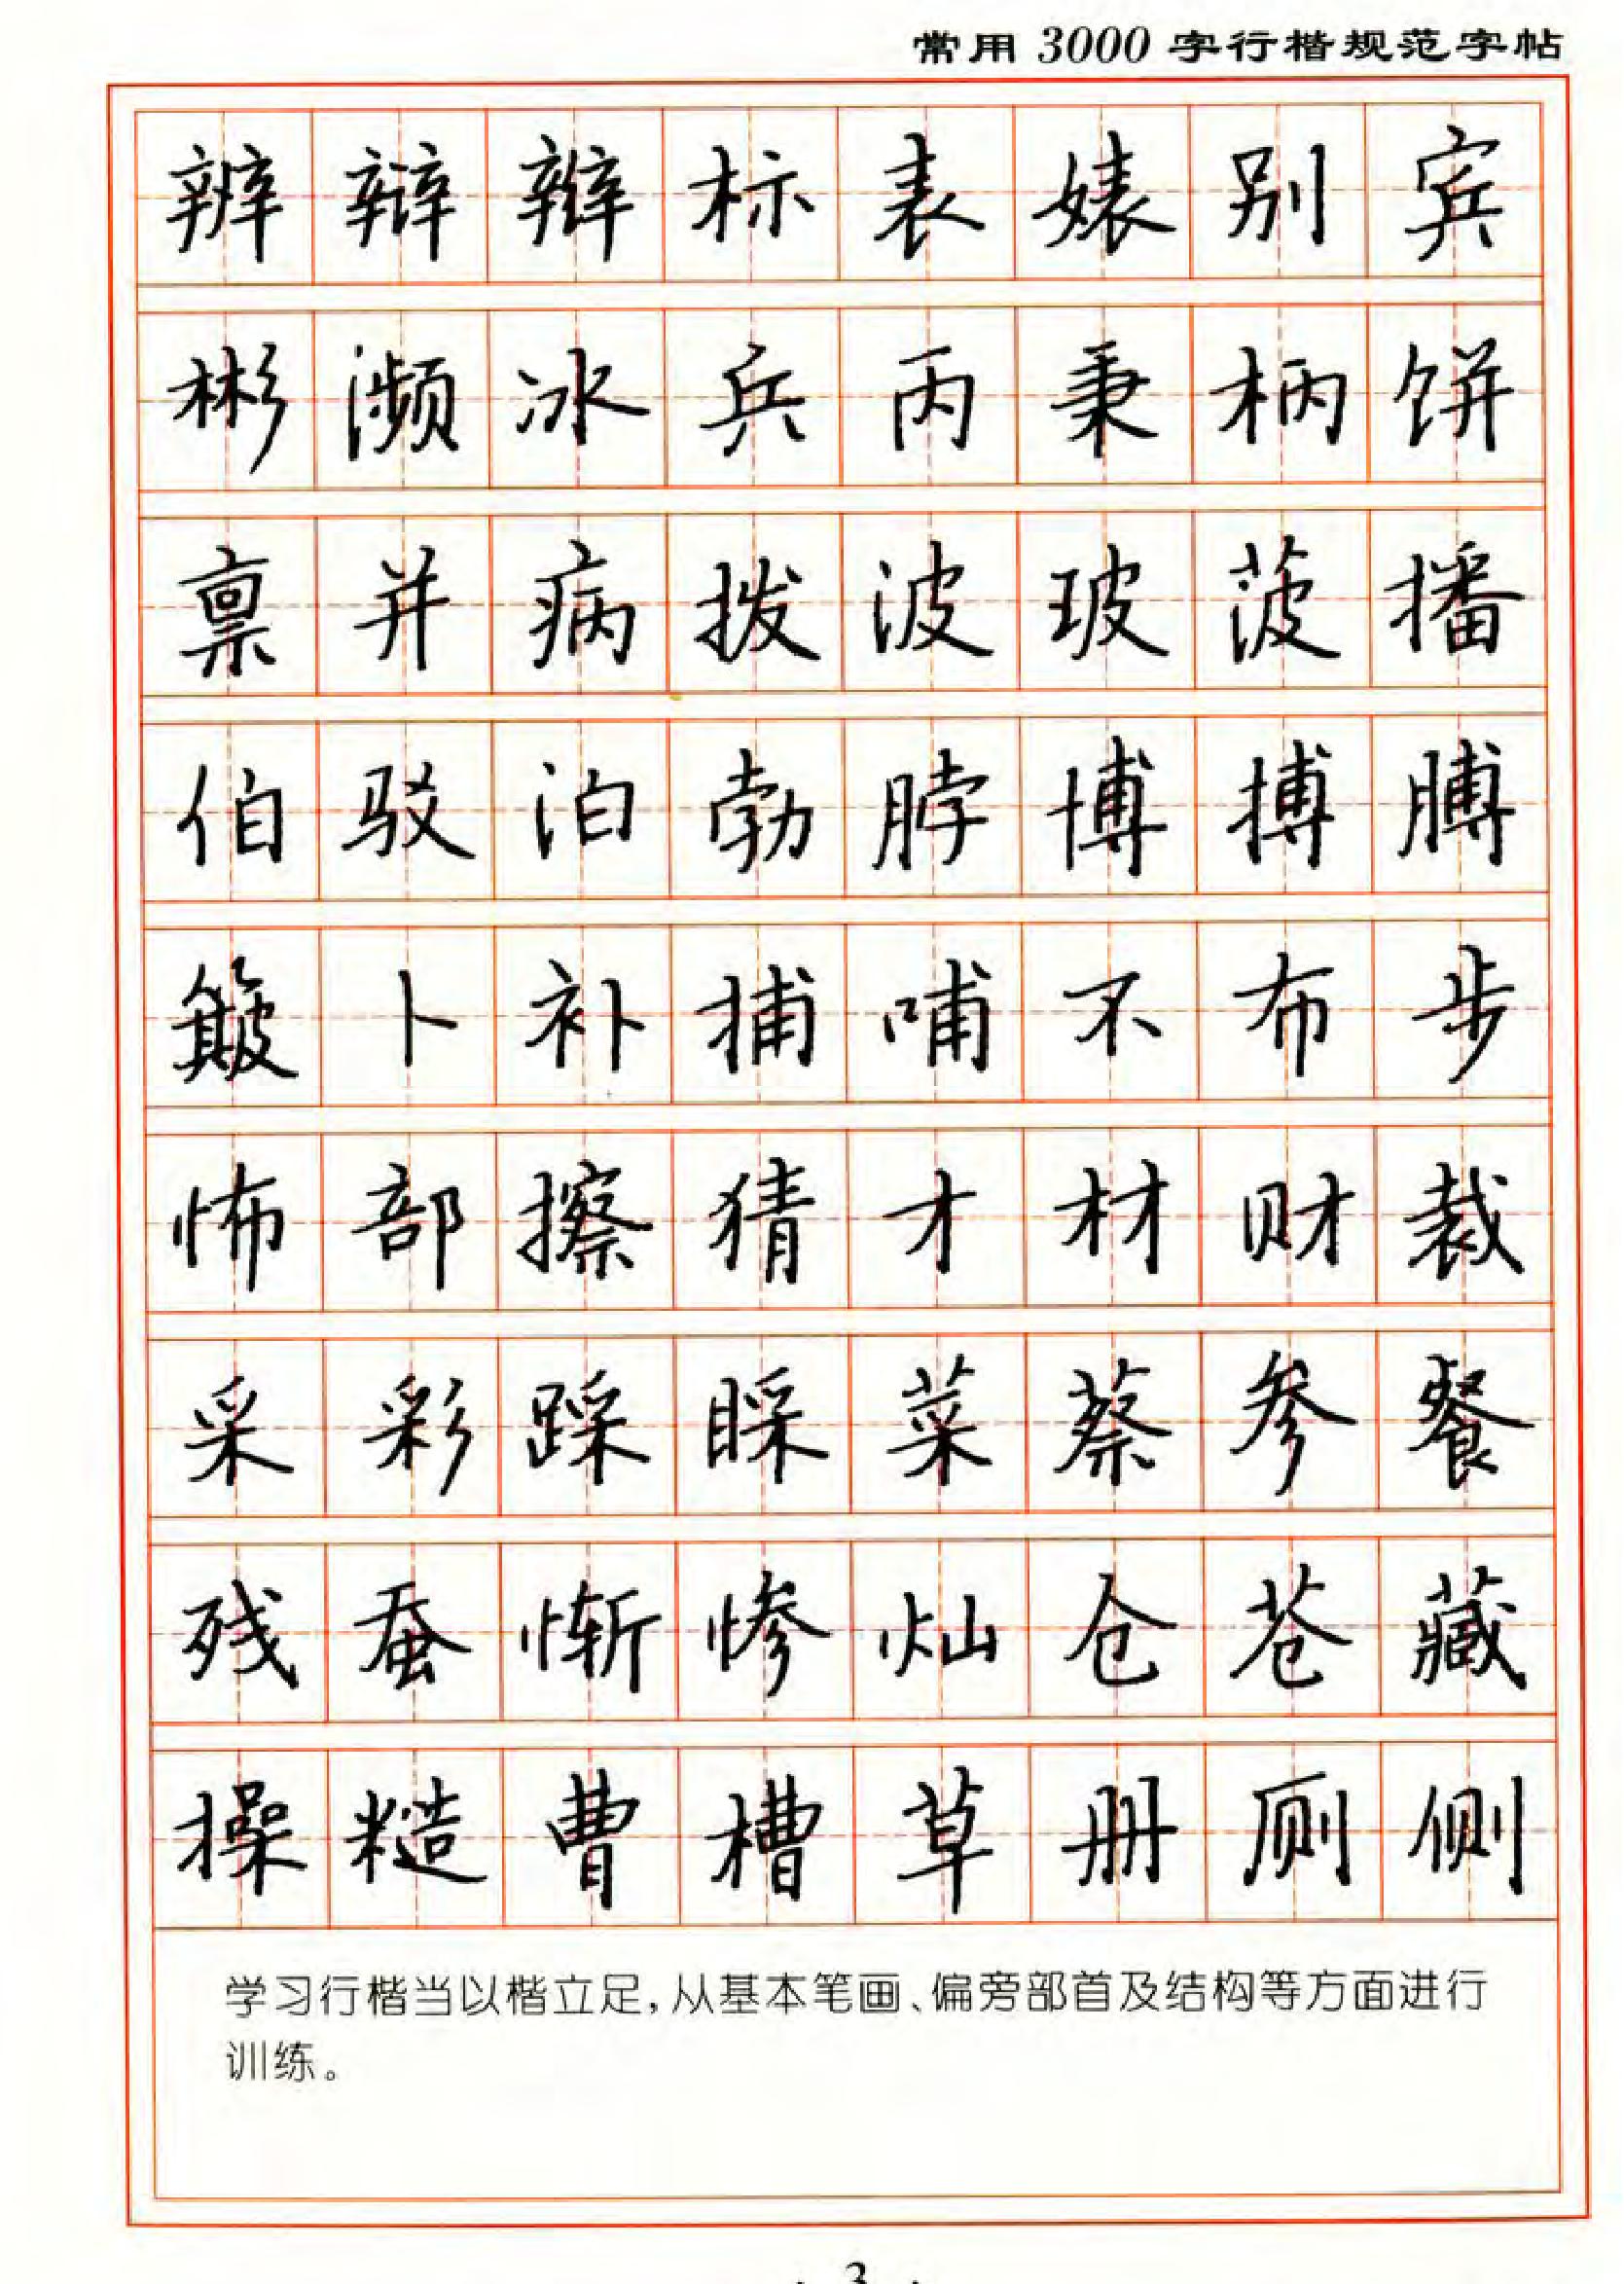 常用3000字行楷规范字帖
辨 辩 辫 标 表 婊 别 宾
彬 濒 冰 兵 丙 秉 柄 饼
禀 并 病 拨 波 玻 菠 播
伯 驳 泊 勃 脖 博 搏 膊
簸 卜 补 捕 哺 不 布 步
怖 部 擦 猜 才 材 财 裁
采 彩 踩 睬 菜 蔡 参 餐
残 蚕 惭 惨 灿 仓 苍 藏
操 糙 曹 槽 草 册 厕 侧
学习行楷当以楷立足,从基本笔画、偏旁部首及结构等方面进行
训练。
· 3 ·